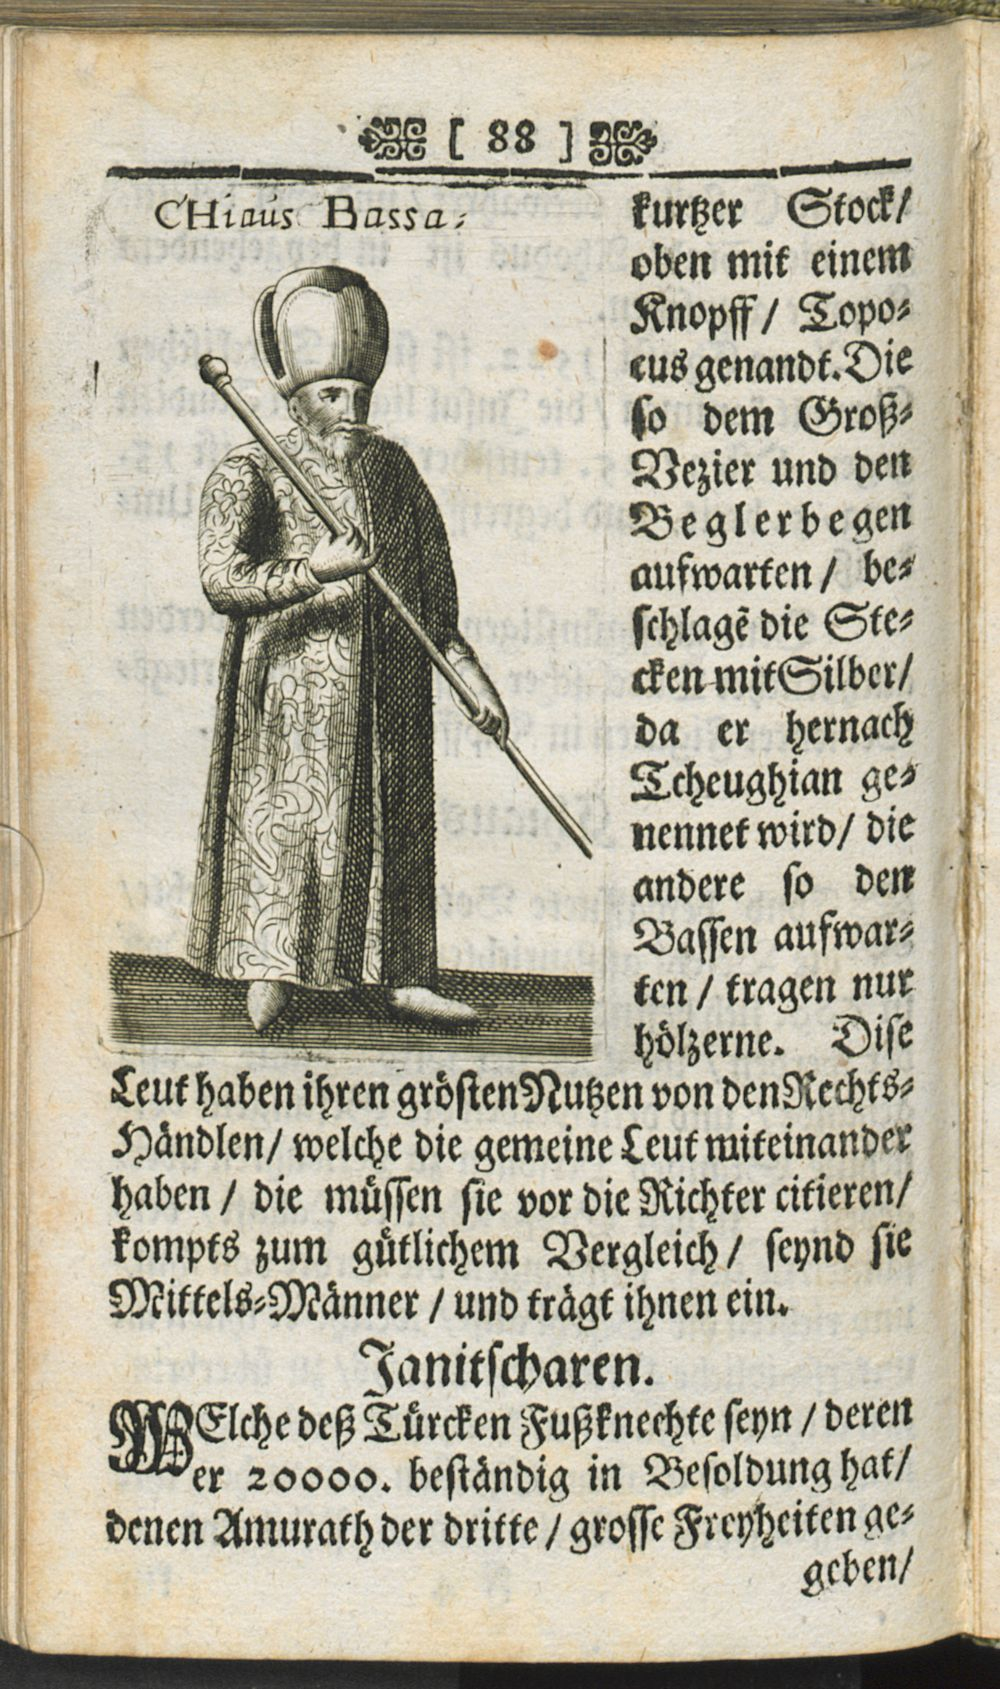 [ 88 ]
CHiaus Bassa:
kurtzer Stock/
oben mit einem
Knopff/ Topo-
cus genandt. Die
so dem Groß-
Vezier und den
Beglerbegen
aufwarten/ be-
schlagē die Ste-
cken mit Silber/
da er hernach
Tcheughian ge-
nennet wird/ die
andere so den
Bassen aufwar-
ten/ tragen nur
hölzerne. Dise
Leut haben ihren grösten Nutzen von den Rechts-
Händlen/ welche die gemeine Leut miteinander
haben/ die müssen sie vor die Richter citieren/
kompts zum gütlichem Vergleich/ seynd sie
Mittels-Männer/ und trägt ihnen ein.
Janitscharen.
WElche deß Türcken Fußknechte seyn/ deren
er 20000. beständig in Besoldung hat/
denen Amurath der dritte/ grosse Freyheiten ge-
geben/